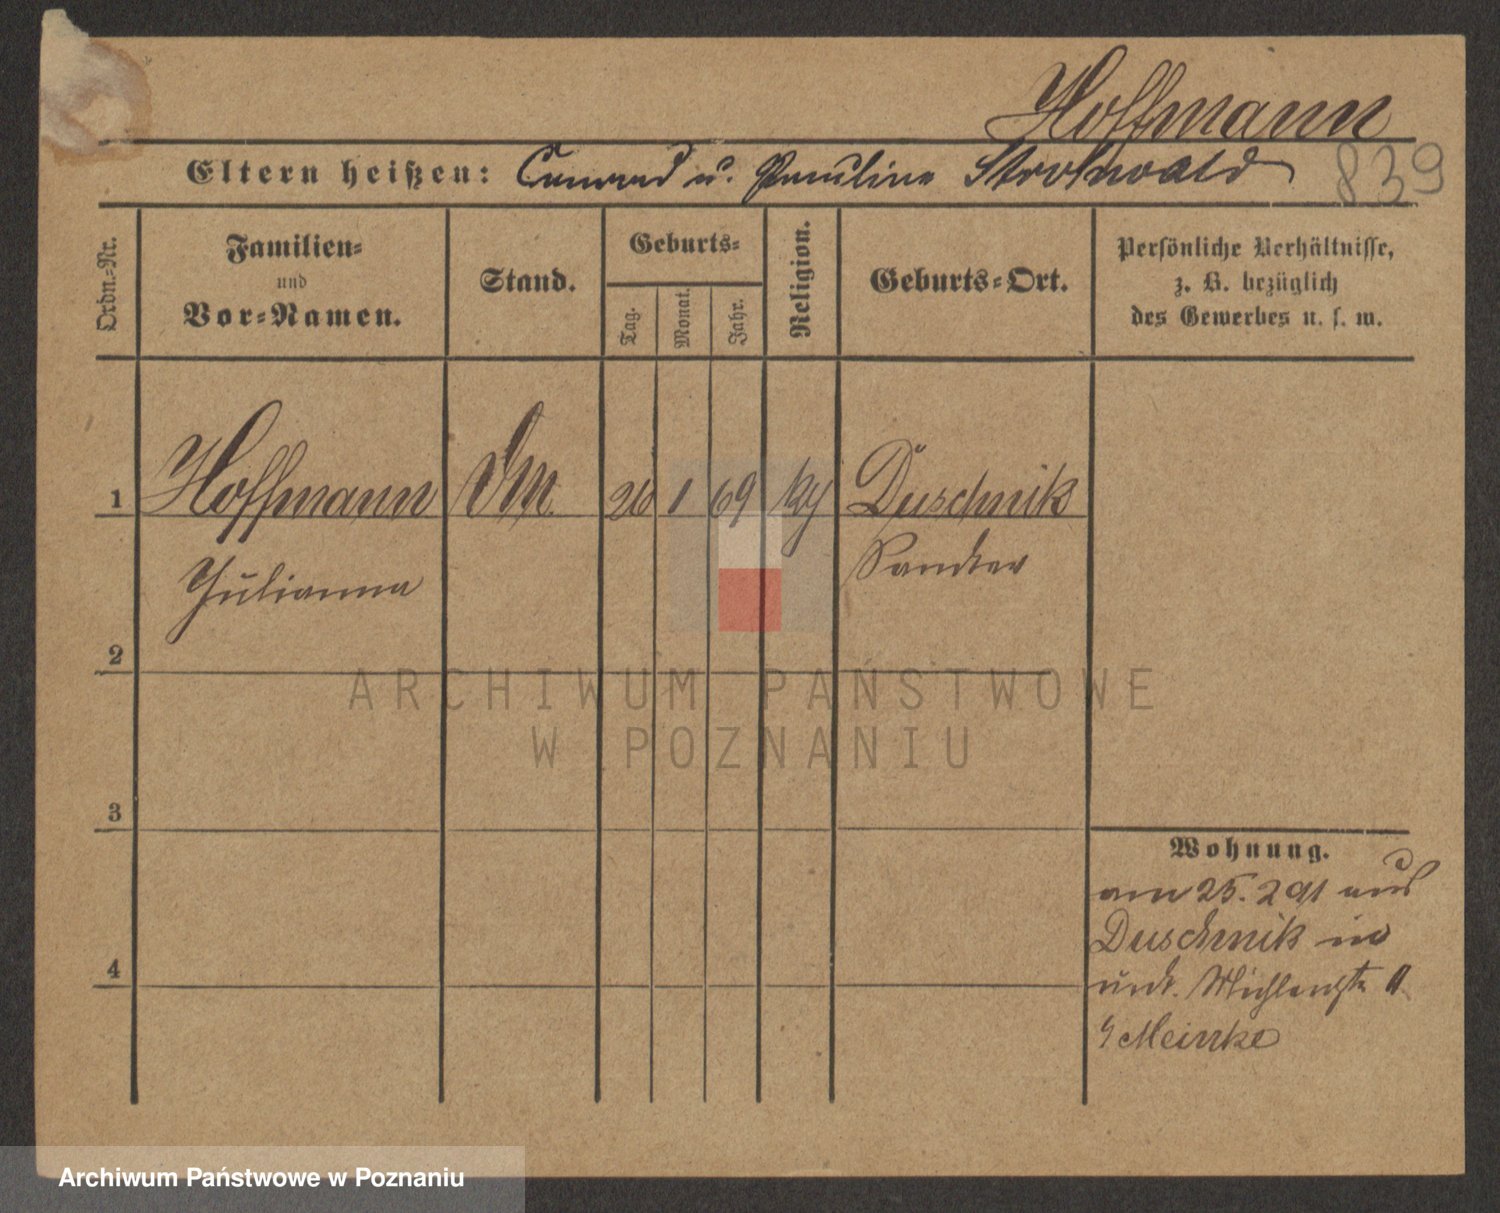 Hoffmann
Eltern heißen: Conrad u. Pauline Strohwald
839
Ordn.-Nr.
Familien-
und
Vor-Namen.
Stand.
Geburts-
Tag.
Monat.
Jahr.
Religion.
Geburts-Ort.
Persönliche Verhältnisse,
z. B. bezüglich
des Gewerbes u. s. w.
1 Hoffmann 26 1 69 Duschnik
Julianna Samter
2
3
4
Wohnung.
am 25. 2 91 aus
Duschnik in
Meinke
ARCHIWUM PAŃSTWOWE
W POZNANIU
Archiwum Państwowe w Poznaniu